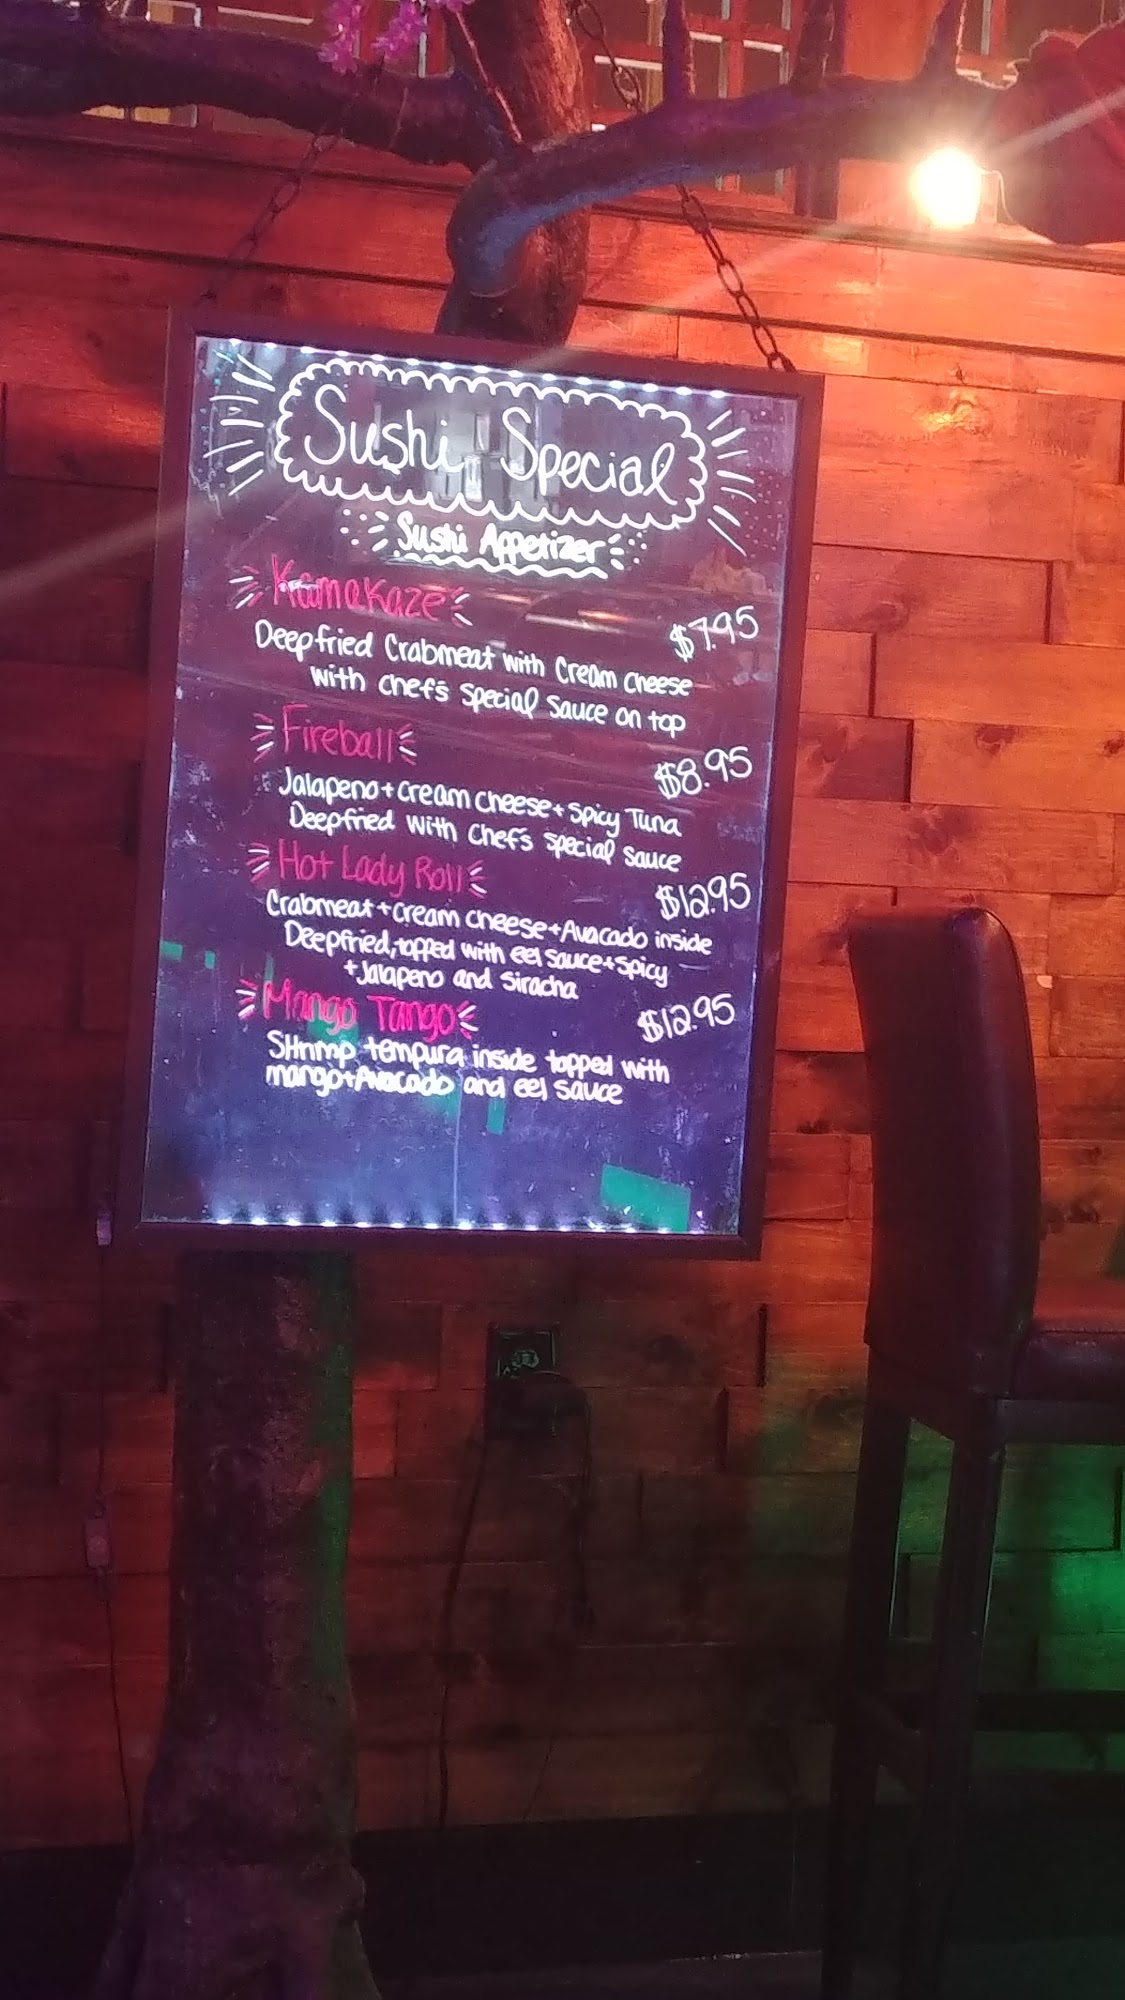 Sushi Special
Sushi Appetizer
Kamakaze
$7.95
Deepfried Crabmeat with Cream Cheese
with chef's Special Sauce on top
Fireball
$8.95
Jalapeno + Cream Cheese + Spicy Tuna
Deepfried with Chef's special sauce
Hot Lady Roll
$12.95
Crabmeat + Cream Cheese + Avacado inside
Deepfried, topped with eel sauce + Spicy
+ Jalapeno and Siracha
Mango Tango
$12.95
SHrimp tempura inside topped with
mango + Avacado and eel sauce